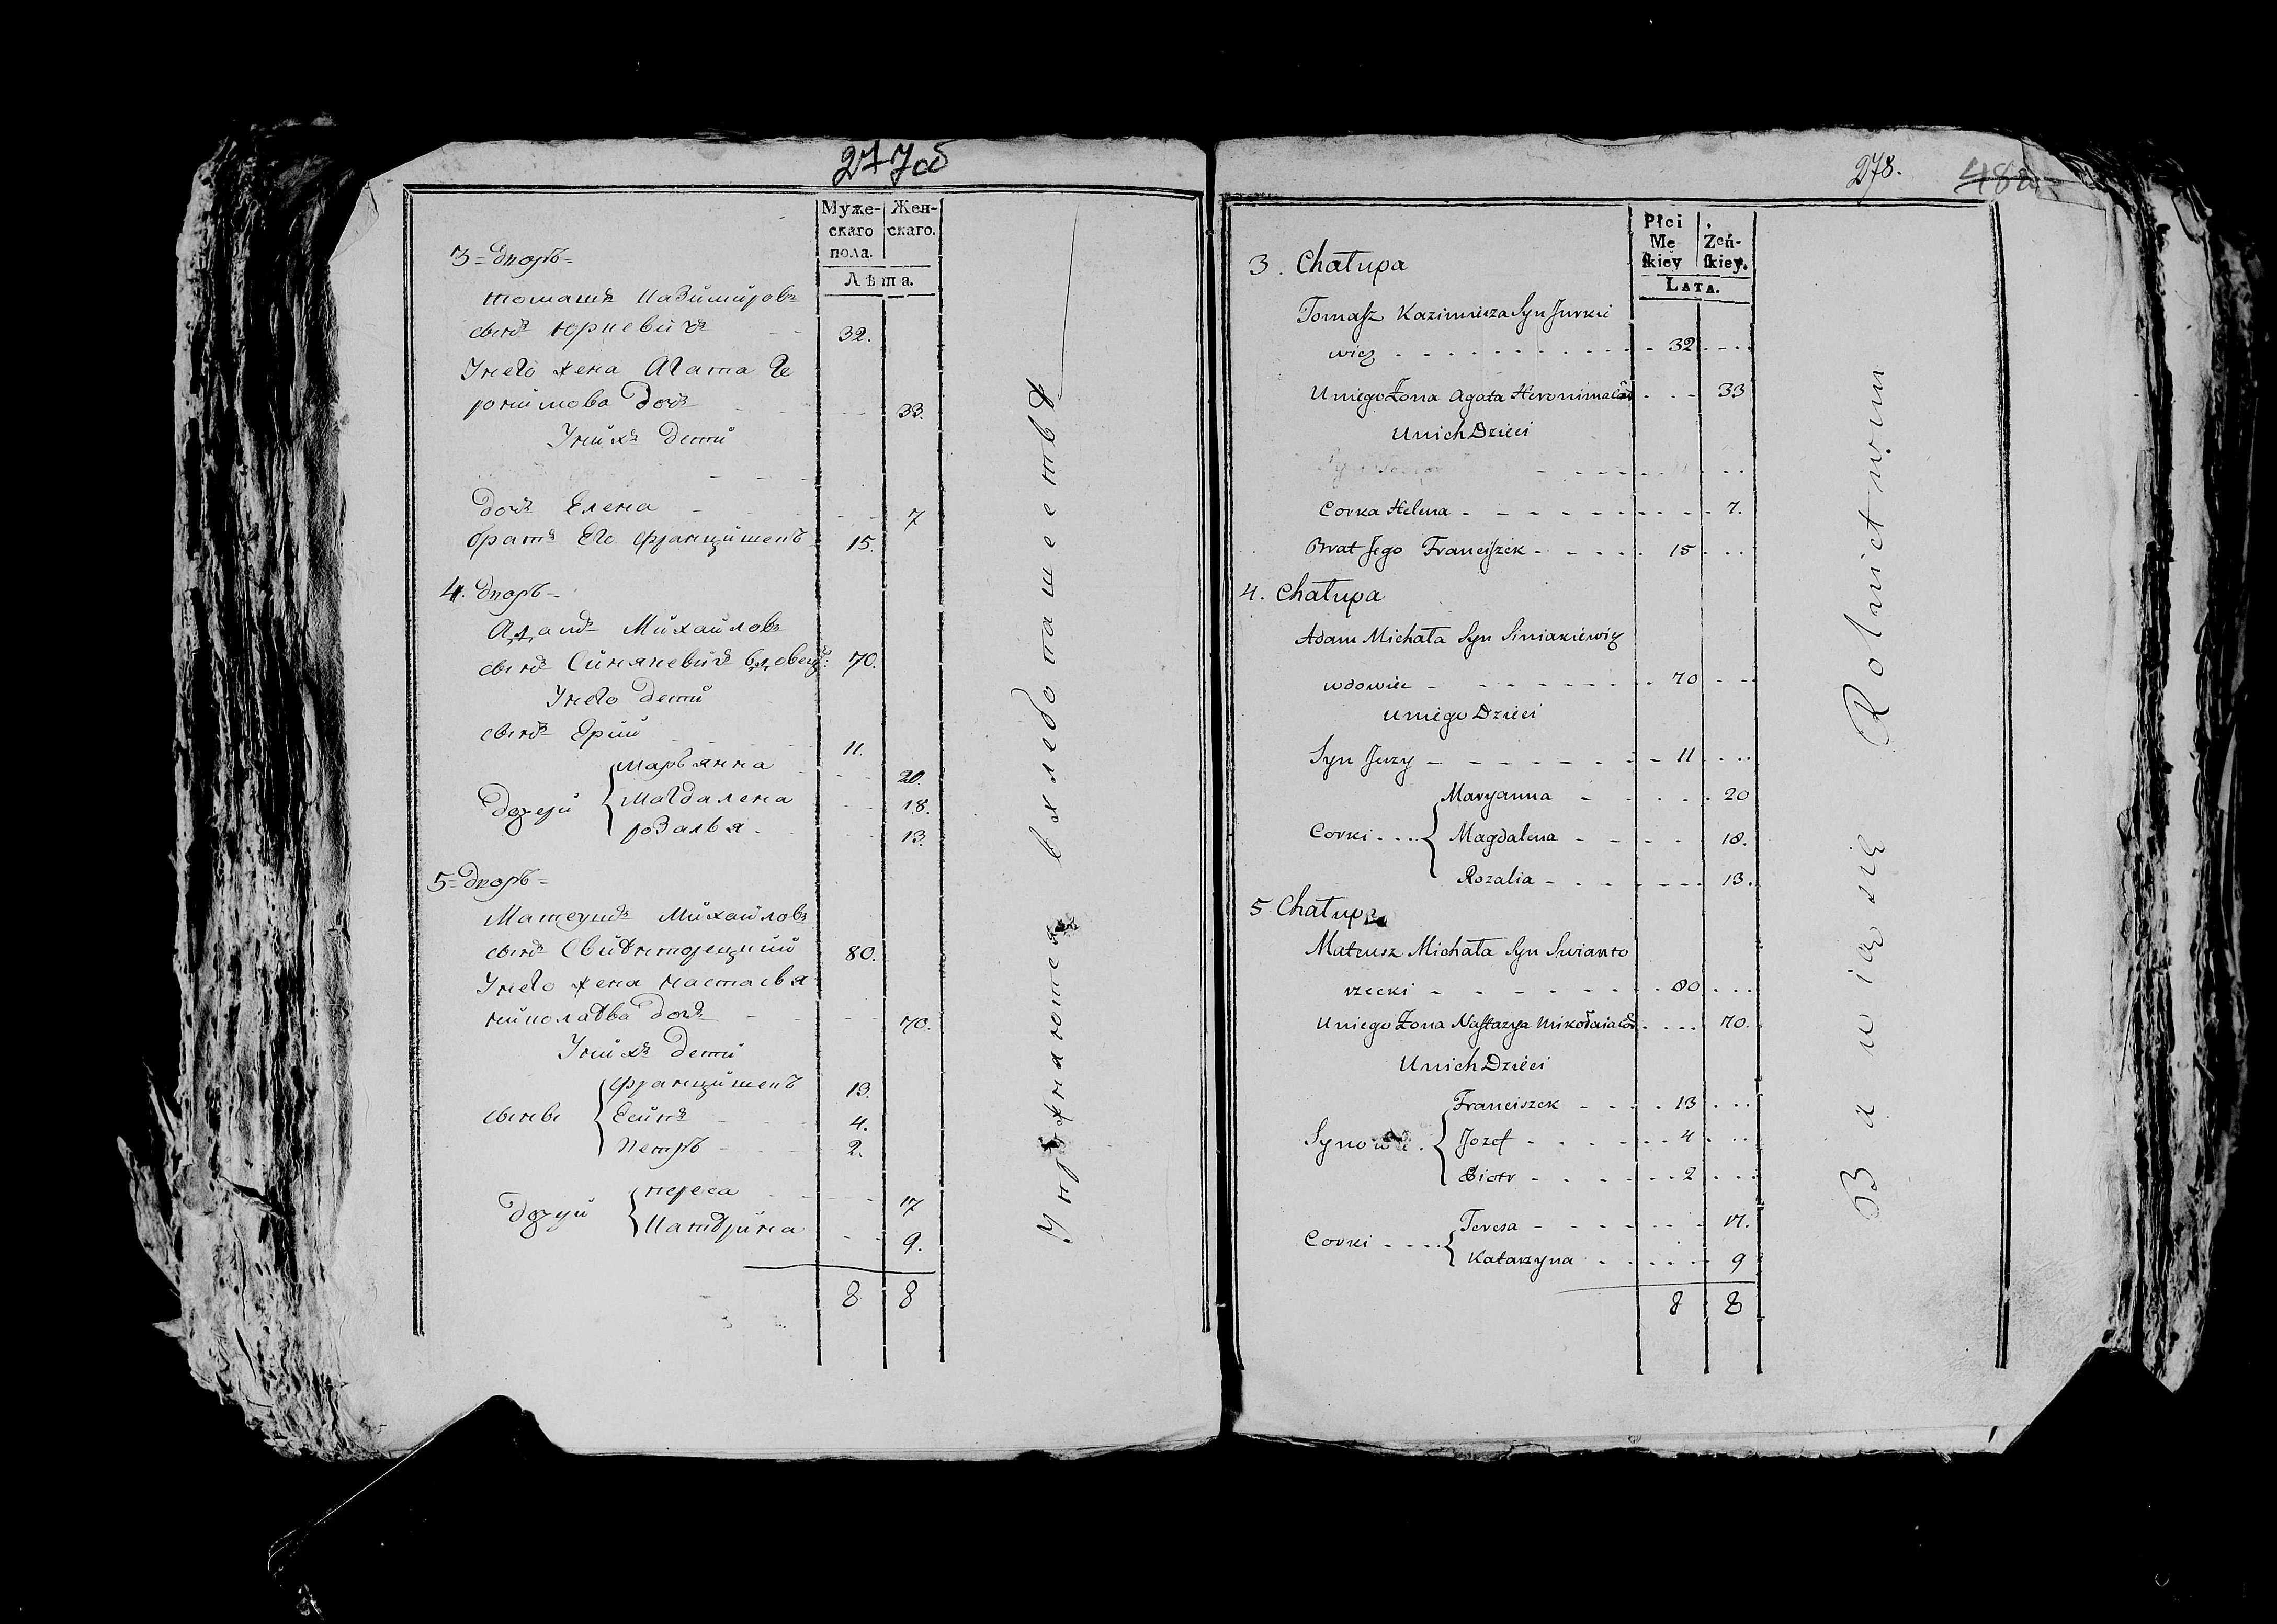 277об
Муже-
скаго
пола.
Жен-
скаго.
Лѣта.
3 = дворъ =
томашъ Казимировъ
сынъ Юркевичъ 32.
У него жена Агата Ге
ронимова дочь 33.
У нихъ дети
дочь Елена 7
братъ Его Францишекъ 15.
4. дворъ -
Адамъ Михайловъ
сынъ Синякевичъ вдовецъ: 70.
У него дети
сынъ Ерий 11.
Марьянна 20.
дочери Магдалена 18.
розалья 13.
5 = дворъ =
Матеушъ Михайловъ
сынъ 80.
У него жена настасья
дочь 70.
У нихъ дети
Францишекъ 13.
сыны 4.
Петръ 2.
тереса 17
дочери Катерина 9.
8 8
Упражняются в хлебопашестве
278.
48
Płci
Mę
skiey
Żeń-
skiey.
LATA.
3. Chałupa
Tomasz Kazimierza Syn Jurkie
wicz 32
U niego Żona Agata Heronima Cór 33
U nich Dzieci
Corka Helena 7.
Brat Jego Franciszek 15
4. Chałupa
Adam Michała Syn Siniakiewicz
wdowiec 70
U niego Dzieci
Syn Jerzy 11
Maryanna 20
Corki Magdalena 18.
Rozalia 13.
5 Chałupa
Mateusz Michała Syn Swianto
rzecki 80
U niego Żona Nastazya Mikołaia Cór 70.
U nich Dzieci
Franciszek 13
Synowie. Jozef 4
Piotr 2
Teresa 17.
Corki Katarzyna 9
8 8
Bawią się Rolnictwem